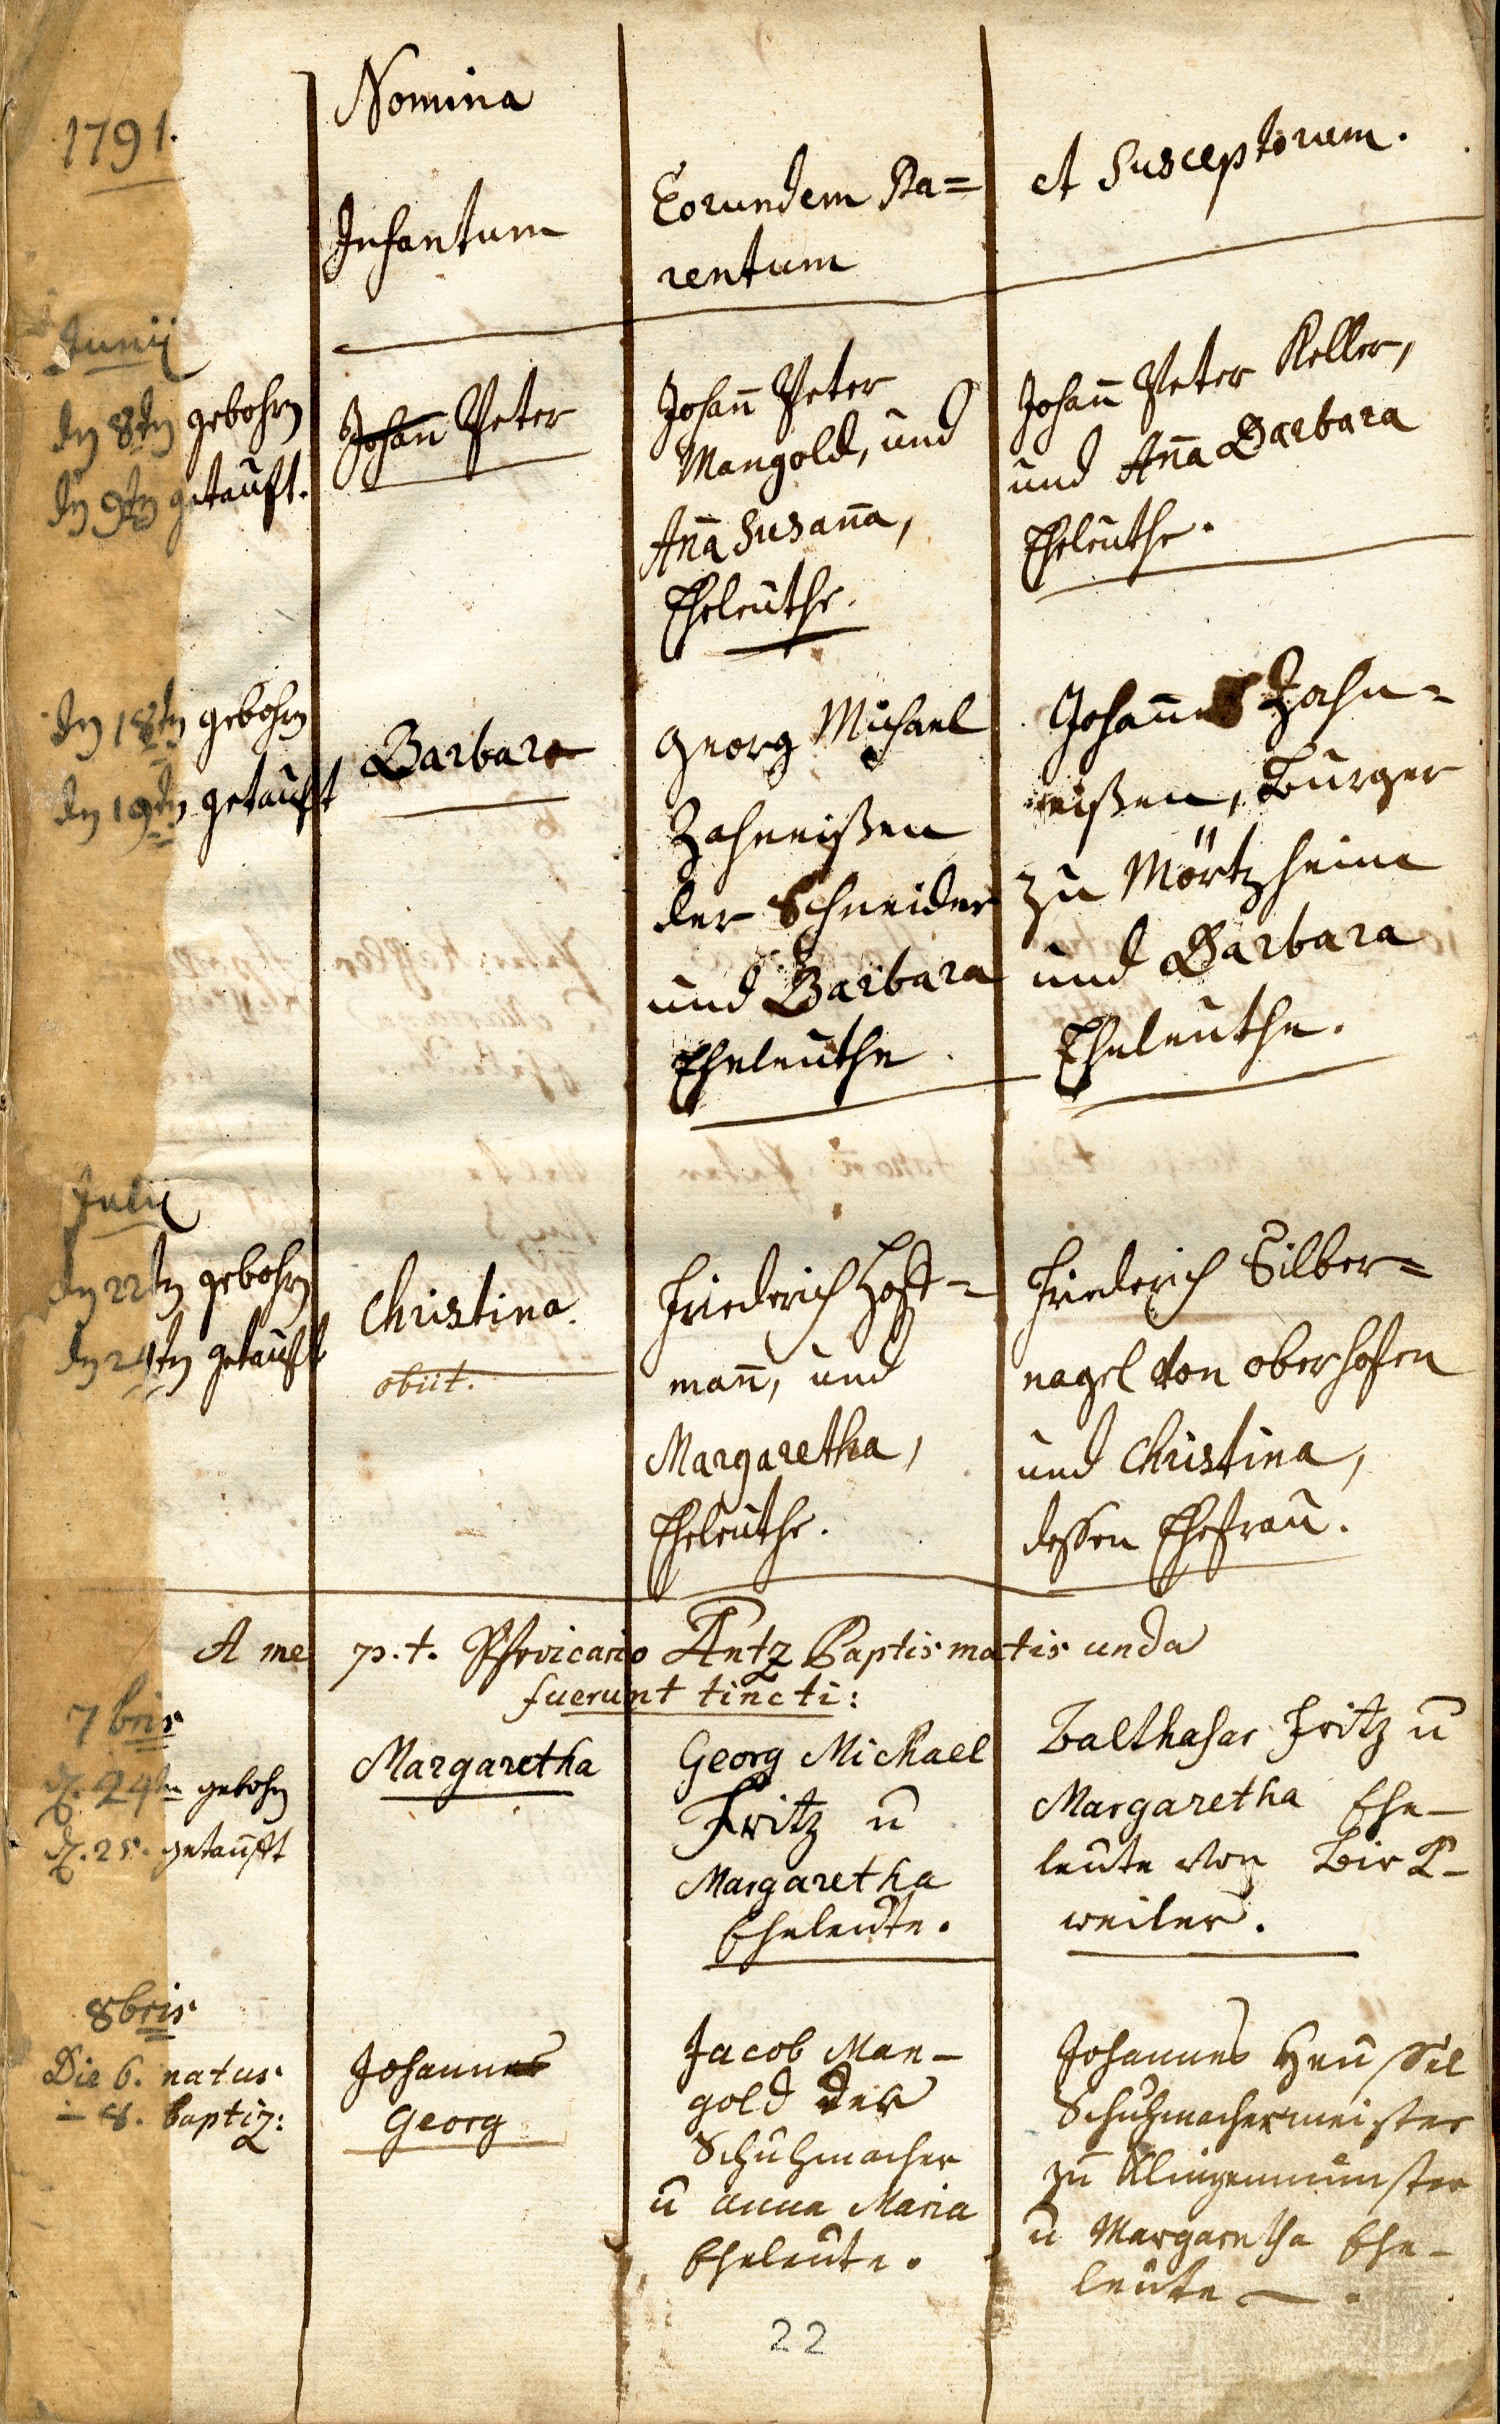 1791.
Nomina
Infantum
Eorundem Pa=
rentum
et Susceptorum.
Junij
dn 8tn gebohrn
dn 9tn getauft.
Johañ Peter
Johañ Peter
Mangold, und
Aña Susaña,
Eheleuthe.
Johañ Peter Keller,
und Aña Barbara
Eheleuthe.
dn 18tn gebohrn
dn 19tn getauft
Barbara
Georg Michael
Zahneißen
der Schneider
und Barbara
Eheleuthe.
Johannes Zahn=
eißen, Burger
zu Mörtzheim
und Barbara
Eheleuthe.
Julii
dn 22tn gebohrn
dn 24tn getauft
Christina.
obiit.
Friederich Hoff=
mañ, und
Margaretha,
Eheleuthe.
Friederich Silber=
nagel von oberhofen
und Christina,
dessen Ehefrau.
A me p.t. Pfrvicario Antz Baptismatis unda
fuerunt tincti:
7bris
d. 24tn gebohrn
d. 25. getaufft
Margaretha
Georg Michael
Fritz u
Margaretha
Eheleute.
Balthasar Fritz u
Margaretha Ehe-
leute von Birk-
weiler.
8bris
Die 6. natus
- 8. baptiz:
Johannes
Georg
Jacob Man-
gold der
Schuhmacher
u anna Maria
Eheleute.
Johannes
Schuhmachermeister
zu Klingenmünster
u Margaretha Ehe-
leute.
22